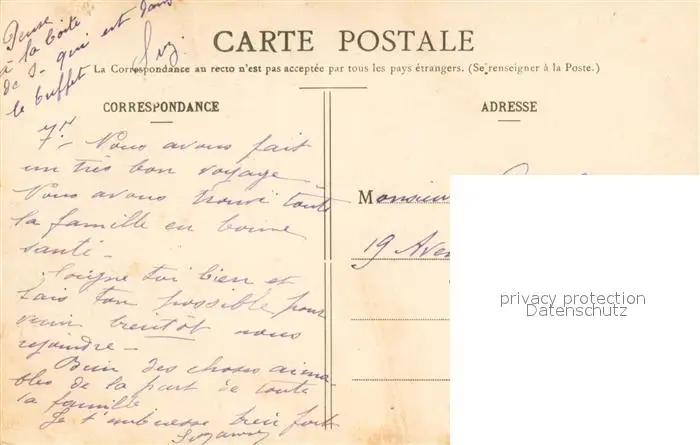 Pense
à la boîte
de S. qui est dans
le buffet
Suz.
CARTE POSTALE
La Correspondance au recto n'est pas acceptée par tous les pays étrangers. (Se renseigner à la Poste.)
CORRESPONDANCE
ADRESSE
7h. Nous avons fait
un très bon voyage
Nous avons trouvé toute
la famille en bonne
santé.
Soigne toi bien et
fais ton possible pour
venir bientôt nous
rejoindre.
Bien des choses aima-
bles de la part de toute
la famille
Je t'embrasse bien fort
Suzanne
Monsieur
19 Aven
privacy protection
Datenschutz